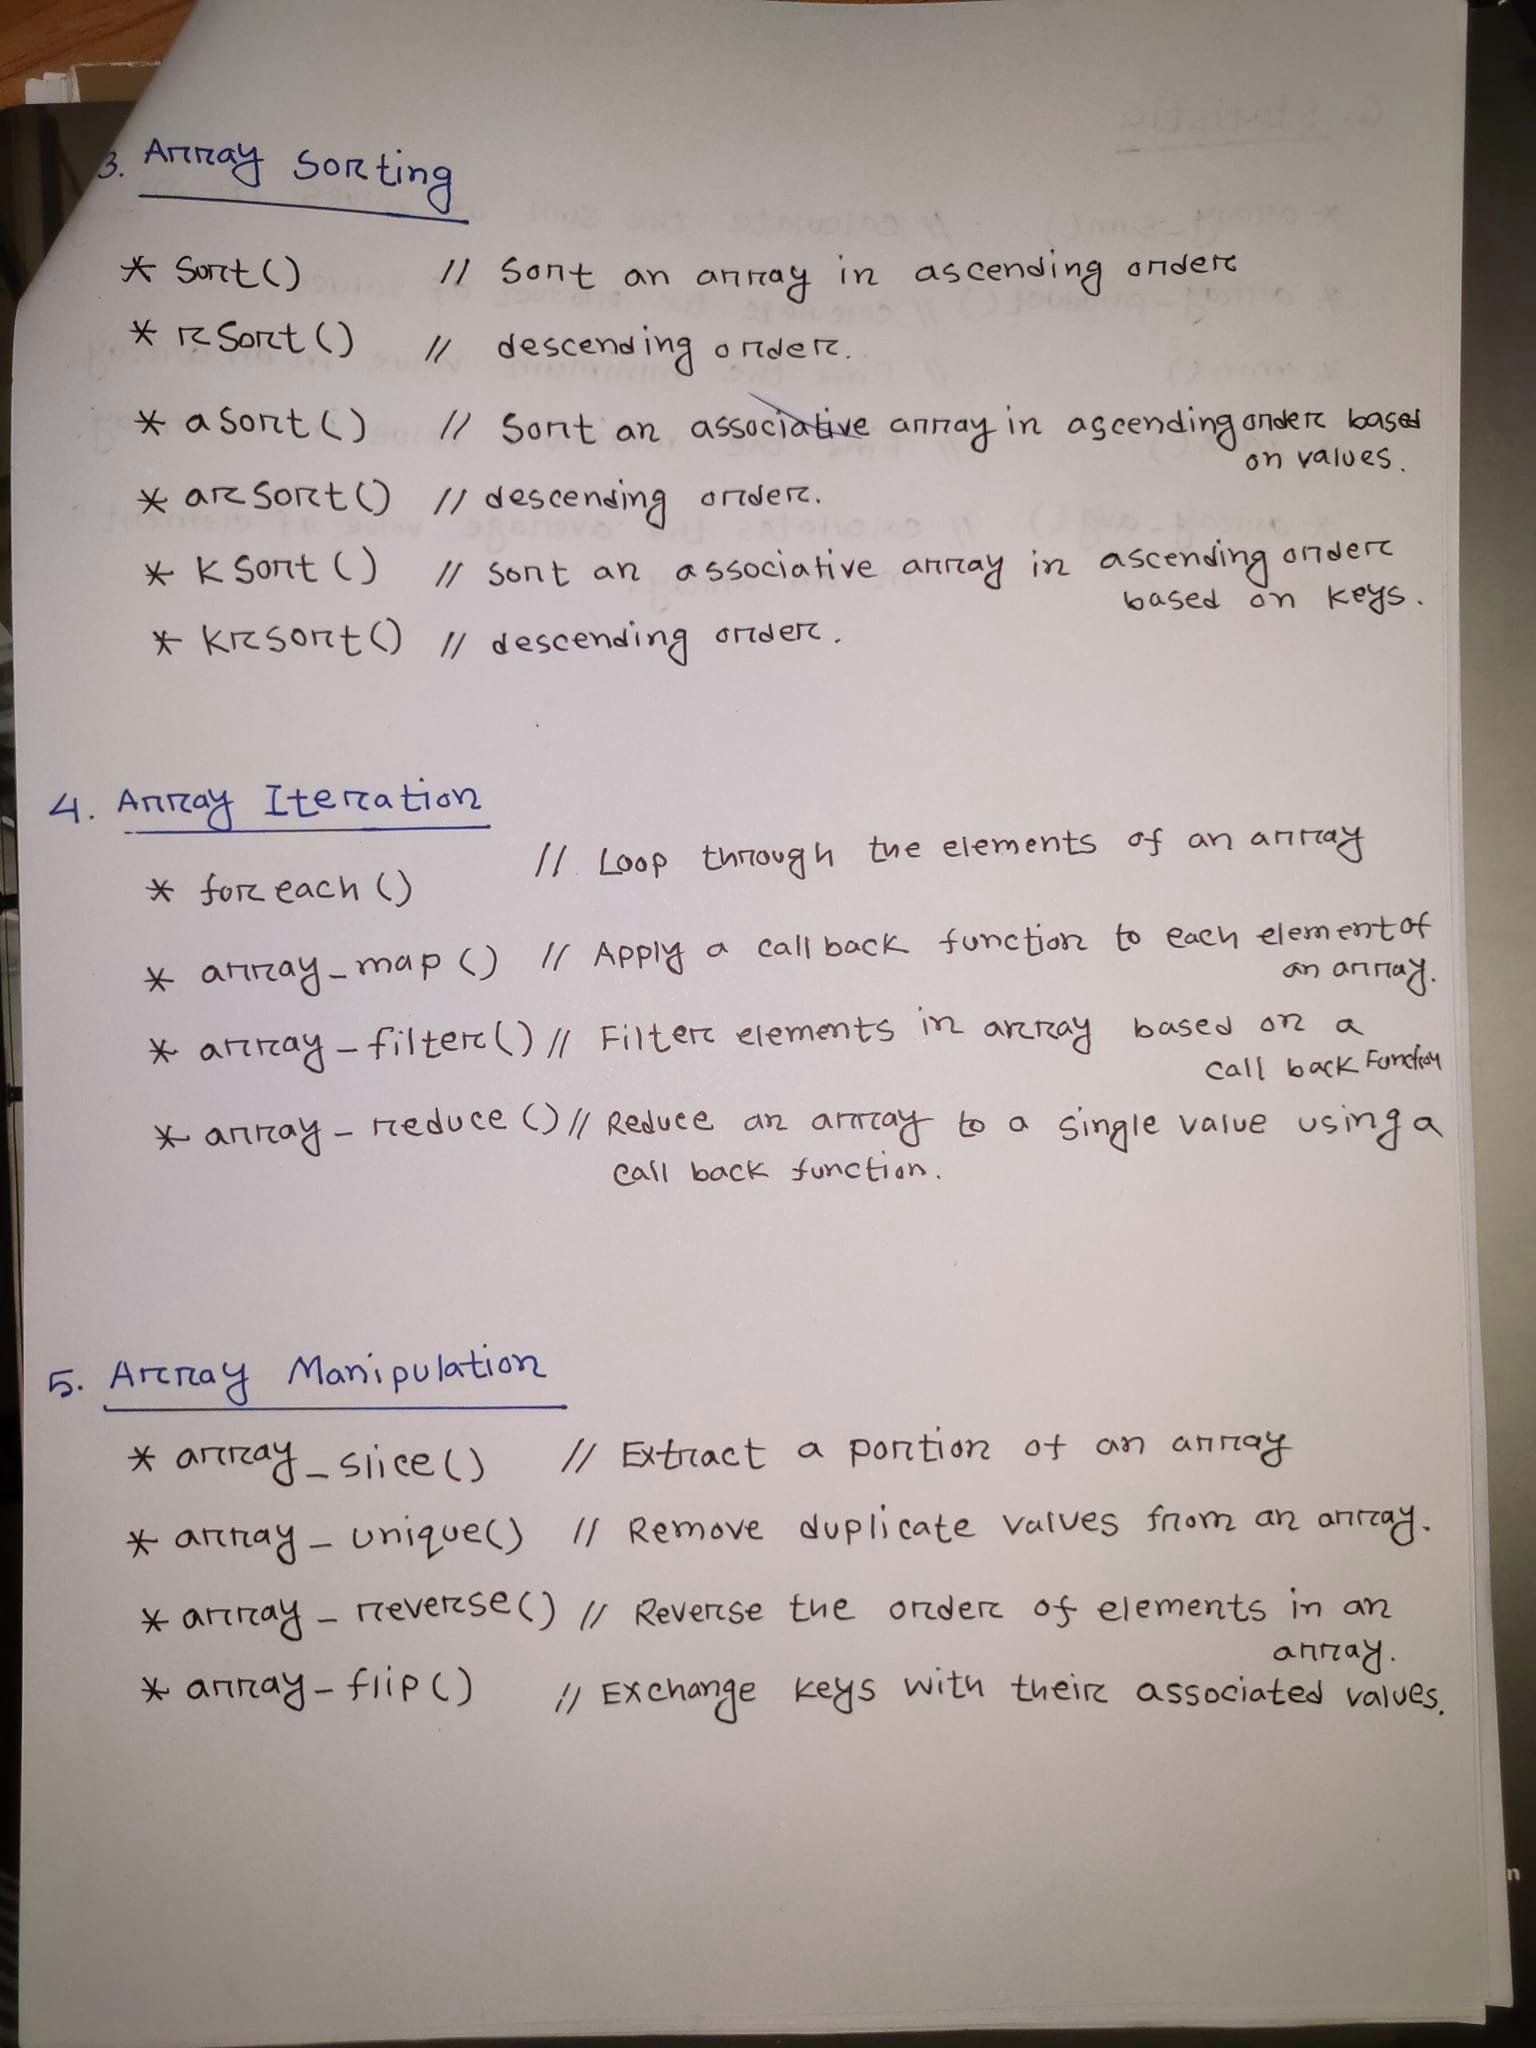 3. Array Sorting
* Sort() // Sort an array in ascending order
* rSort() // descending order.
* aSort() // Sort an associative array in ascending order based
on values.
* arSort() // descending order.
* KSort() // Sort an associative array in ascending order
based on keys.
* Krsort() // descending order.
4. Array Iteration
* foreach() // Loop through the elements of an array
* array_map() // Apply a call back function to each element of
an array.
* array_filter() // Filter elements in array based on a
call back Function
* array_reduce() // Reduce an array to a single value using a
call back function.
5. Array Manipulation
* array_slice() // Extract a portion of an array
* array_unique() // Remove duplicate values from an array.
* array_reverse() // Reverse the order of elements in an
array.
* array_flip() // Exchange keys with their associated values.